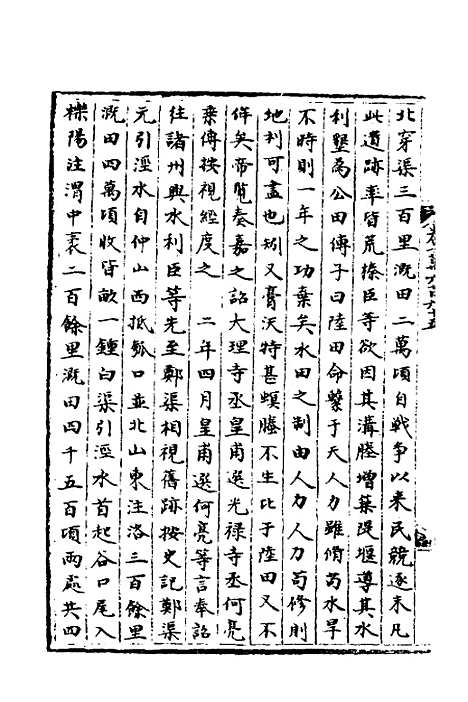 北穿渠三百里溉田二萬頃自戰爭以來民競逐末凡
此遺跡率皆荒榛臣等欲因其溝塍增築隄堰導其水
利墾為公田傅子曰陸田命繫于天人力雖脩苟水旱
不時則一年之功棄矣水田之制由人力人力苟修則
地利可盡也矧又膏沃特甚螟螣不生比于陸田又不
侔矣帝覽奏嘉之詔大理寺丞皇甫選光祿寺丞何亮
乘傳按視經度之 二年四月皇甫選何亮等言奉詔
往諸州興水利臣等先至鄭渠相視舊跡按史記鄭渠
元引涇水自仲山西抵瓠口並北山東注洛三百餘里
溉田四萬頃收皆畝一鍾白渠引涇水首起谷口尾入
櫟陽注渭中袤二百餘里溉田四千五百頃兩處共四